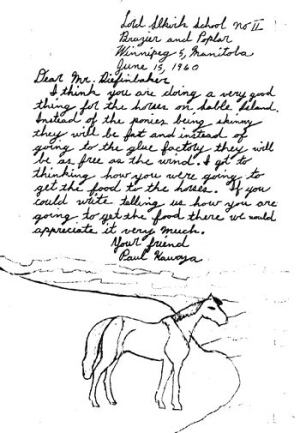 Lord Slkirk School no II
Brazier and Poplar
Winnipeg 5, Manitoba
June 15, 1960
Dear Mr. Diefinbaker,
I think you are doing a very good
thing for the horses on Sable Island.
Instead of the ponies being skinny
they will be fat and instead of
going to the glue factory they will
be as free as the wind. I got to
thinking how you were going to
get the food to the horses. If you
could write telling us how you are
going to get the food there we would
appreciate it very much.
Your friend
Paul